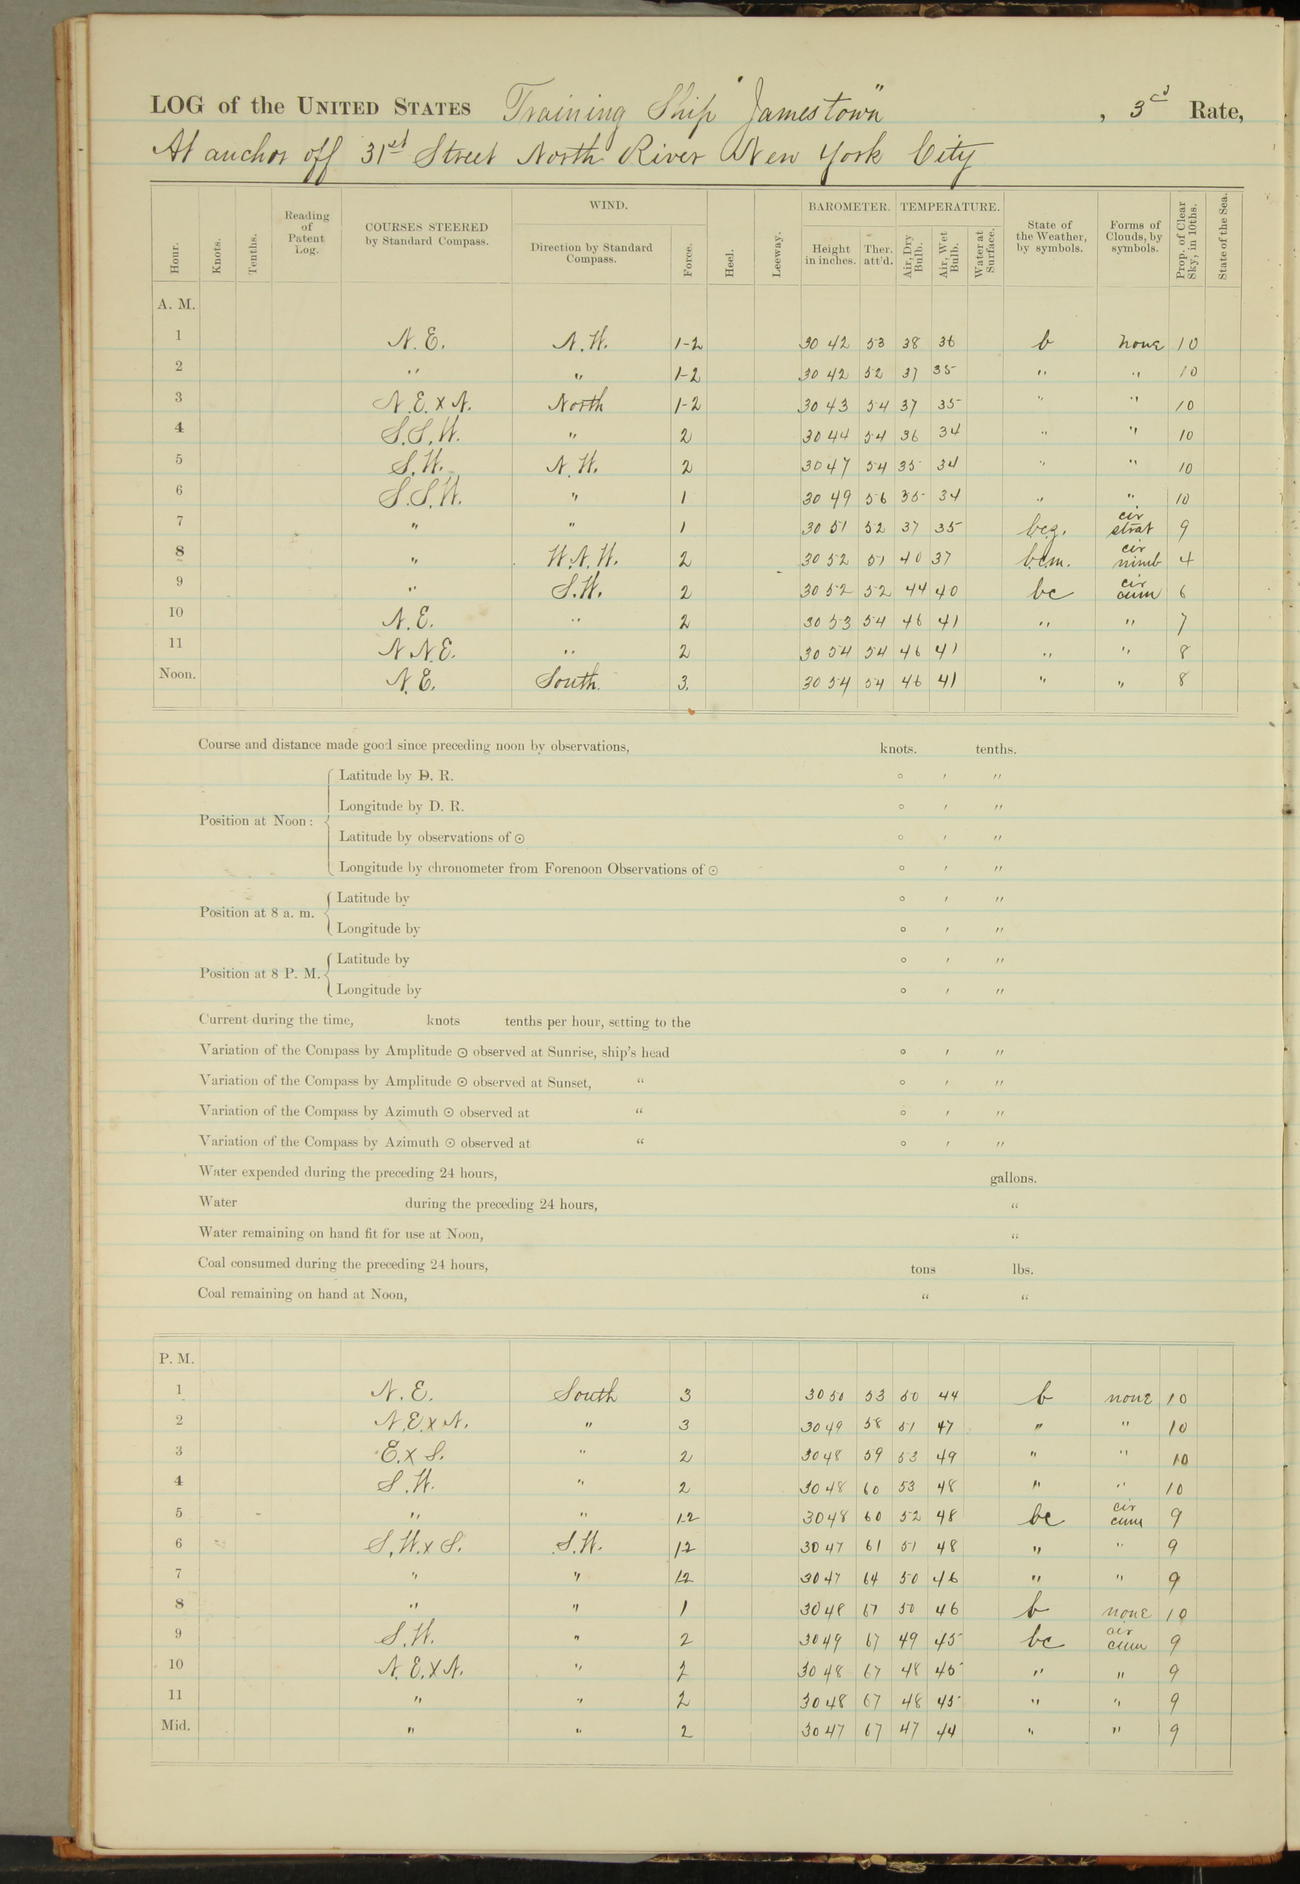 LOG of the UNITED STATES Training Ship "Jamestown", 3rd Rate,
At anchor off 31st Street North River New York City
Hour. Knots. Tenths. Reading of Patent Log. COURSES STEERED by Standard Compass. WIND. Direction by Standard Compass. Force. Heel. Leeway. BAROMETER. Height in inches. Ther. att'd. TEMPERATURE. Air, Dry Bulb. Air, Wet Bulb. Water at Surface. State of the Weather, by symbols. Forms of Clouds, by symbols. Prop. of Clear Sky, in 10ths. State of the Sea.
A. M.
1 N.E. N.W. 1-2 30 42 53 38 36 b none 10
2 " " 1-2 30 42 52 37 35 " " 10
3 N.E. x N. North 1-2 30 43 54 37 35 " " 10
4 S.S.W. " 2 30 44 54 36 34 " " 10
5 S.W. N.W. 2 30 47 54 35 34 " " 10
6 S.S.W. " 1 30 49 56 35 34 " " 10
7 " " 1 30 51 52 37 35 bcz. cir strat 9
8 " W.N.W. 2 30 52 51 40 37 bcm. cir nimb 4
9 " S.W. 2 30 52 52 44 40 bc cir cum 6
10 N.E. " 2 30 53 54 46 41 " " 7
11 N.N.E. " 2 30 54 54 46 41 " " 8
Noon. N.E. South. 3. 30 54 54 46 41 " " 8
Course and distance made good since preceding noon by observations, knots. tenths.
Position at Noon: Latitude by D. R. ° ′ ″
Longitude by D. R. ° ′ ″
Latitude by observations of ☉ ° ′ ″
Longitude by chronometer from Forenoon Observations of ☉ ° ′ ″
Position at 8 a. m. Latitude by ° ′ ″
Longitude by ° ′ ″
Position at 8 P. M. Latitude by ° ′ ″
Longitude by ° ′ ″
Current during the time, knots tenths per hour, setting to the
Variation of the Compass by Amplitude ☉ observed at Sunrise, ship's head ° ′ ″
Variation of the Compass by Amplitude ☉ observed at Sunset, " ° ′ ″
Variation of the Compass by Azimuth ☉ observed at " ° ′ ″
Variation of the Compass by Azimuth ☉ observed at " ° ′ ″
Water expended during the preceding 24 hours, gallons.
Water during the preceding 24 hours, "
Water remaining on hand fit for use at Noon, "
Coal consumed during the preceding 24 hours, tons lbs.
Coal remaining on hand at Noon, " "
P. M.
1 N.E. South 3 30 50 53 50 44 b none 10
2 N.E. x N. " 3 30 49 58 51 47 " " 10
3 E. x S. " 2 30 48 59 53 49 " " 10
4 S.W. " 2 30 48 60 53 48 " " 10
5 " " 1.2 30 48 60 52 48 bc cir cum 9
6 S.W. x S. S.W. 1.2 30 47 61 51 48 " " 9
7 " " 12 30 47 64 50 46 " " 9
8 " " 1 30 48 67 50 46 b none 10
9 S.W. " 2 30 49 67 49 45 bc cir cum 9
10 N.E. x N. " 2 30 48 67 48 45 " " 9
11 " " 2 30 48 67 48 45 " " 9
Mid. " " 2 30 47 67 47 44 " " 9